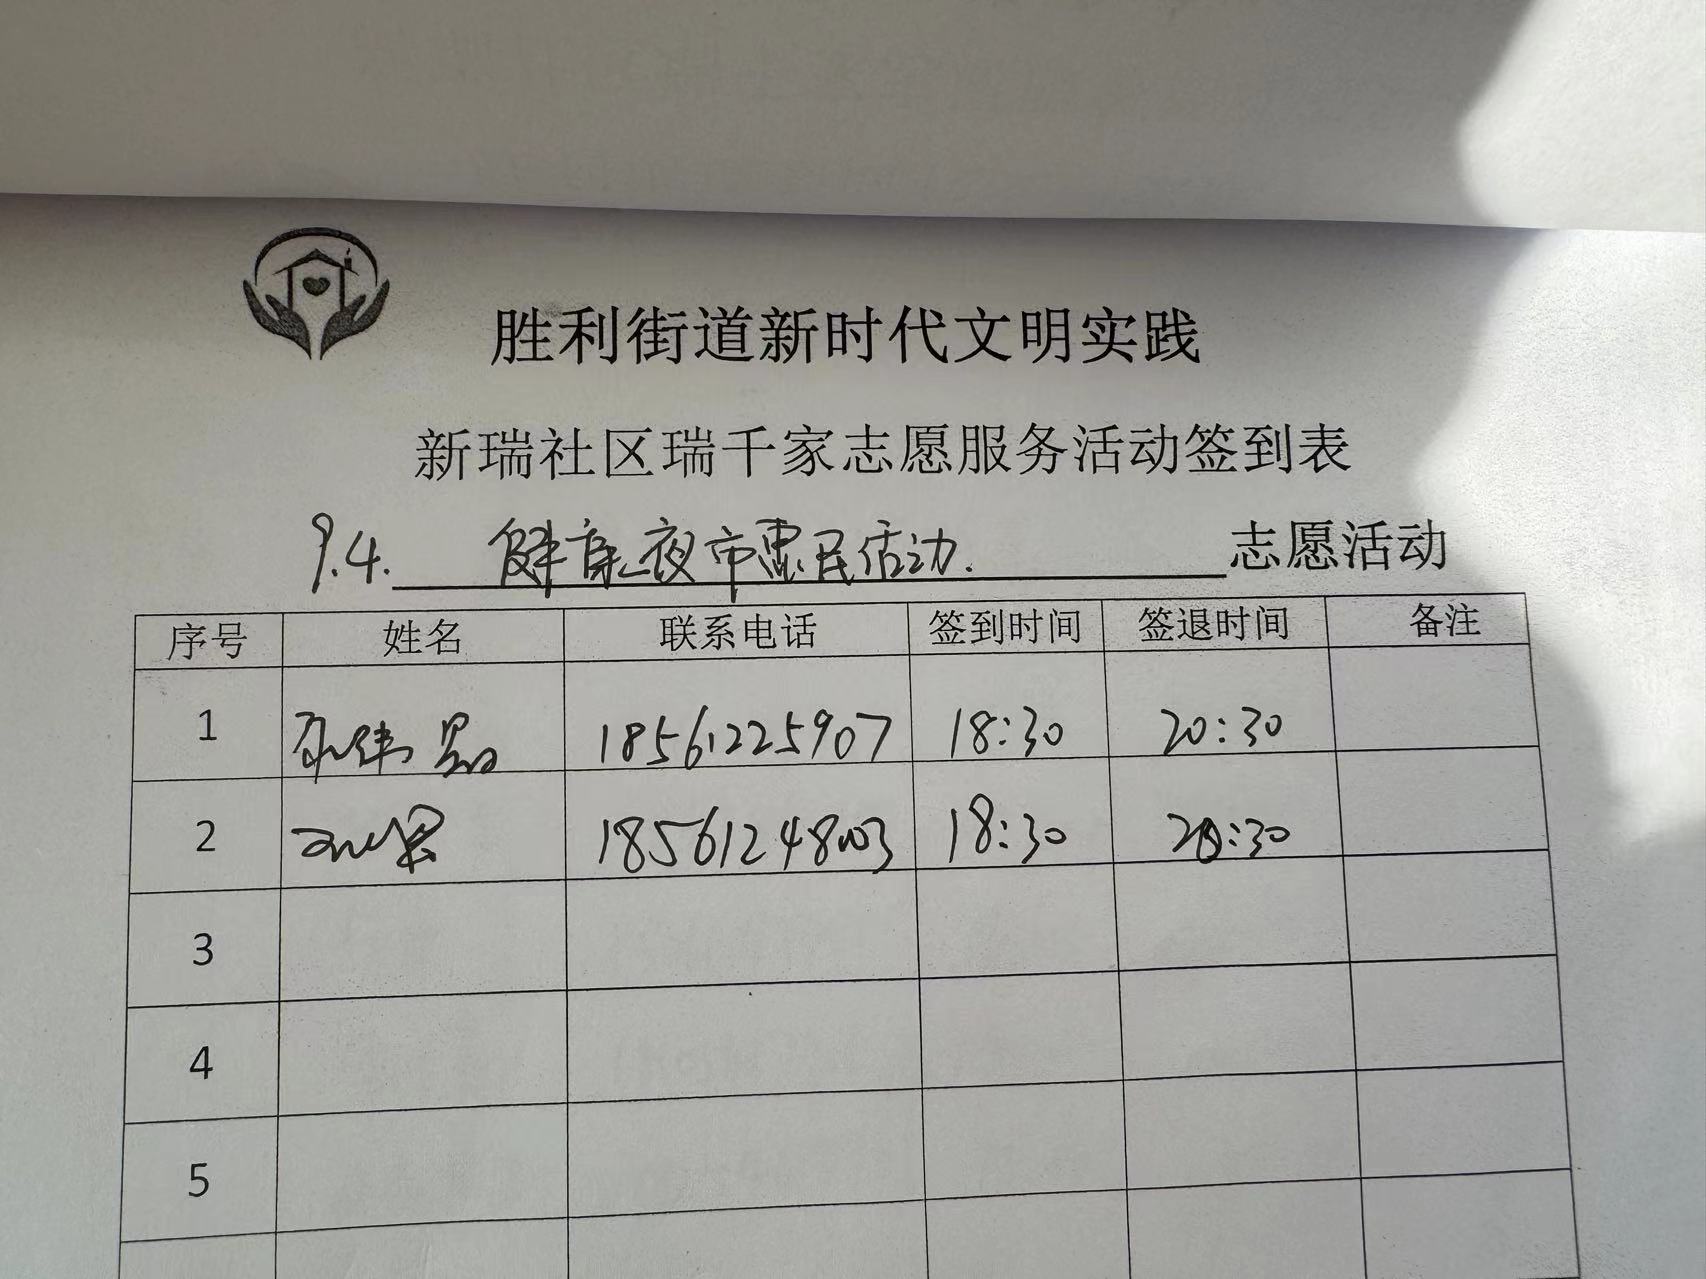 胜利街道新时代文明实践
新瑞社区瑞千家志愿服务活动签到表
9.4. 健康夜市惠民活动. 志愿活动
序号 姓名 联系电话 签到时间 签退时间 备注
1 18561225907 18:30 20:30
2 18:30 20:30
3
4
5